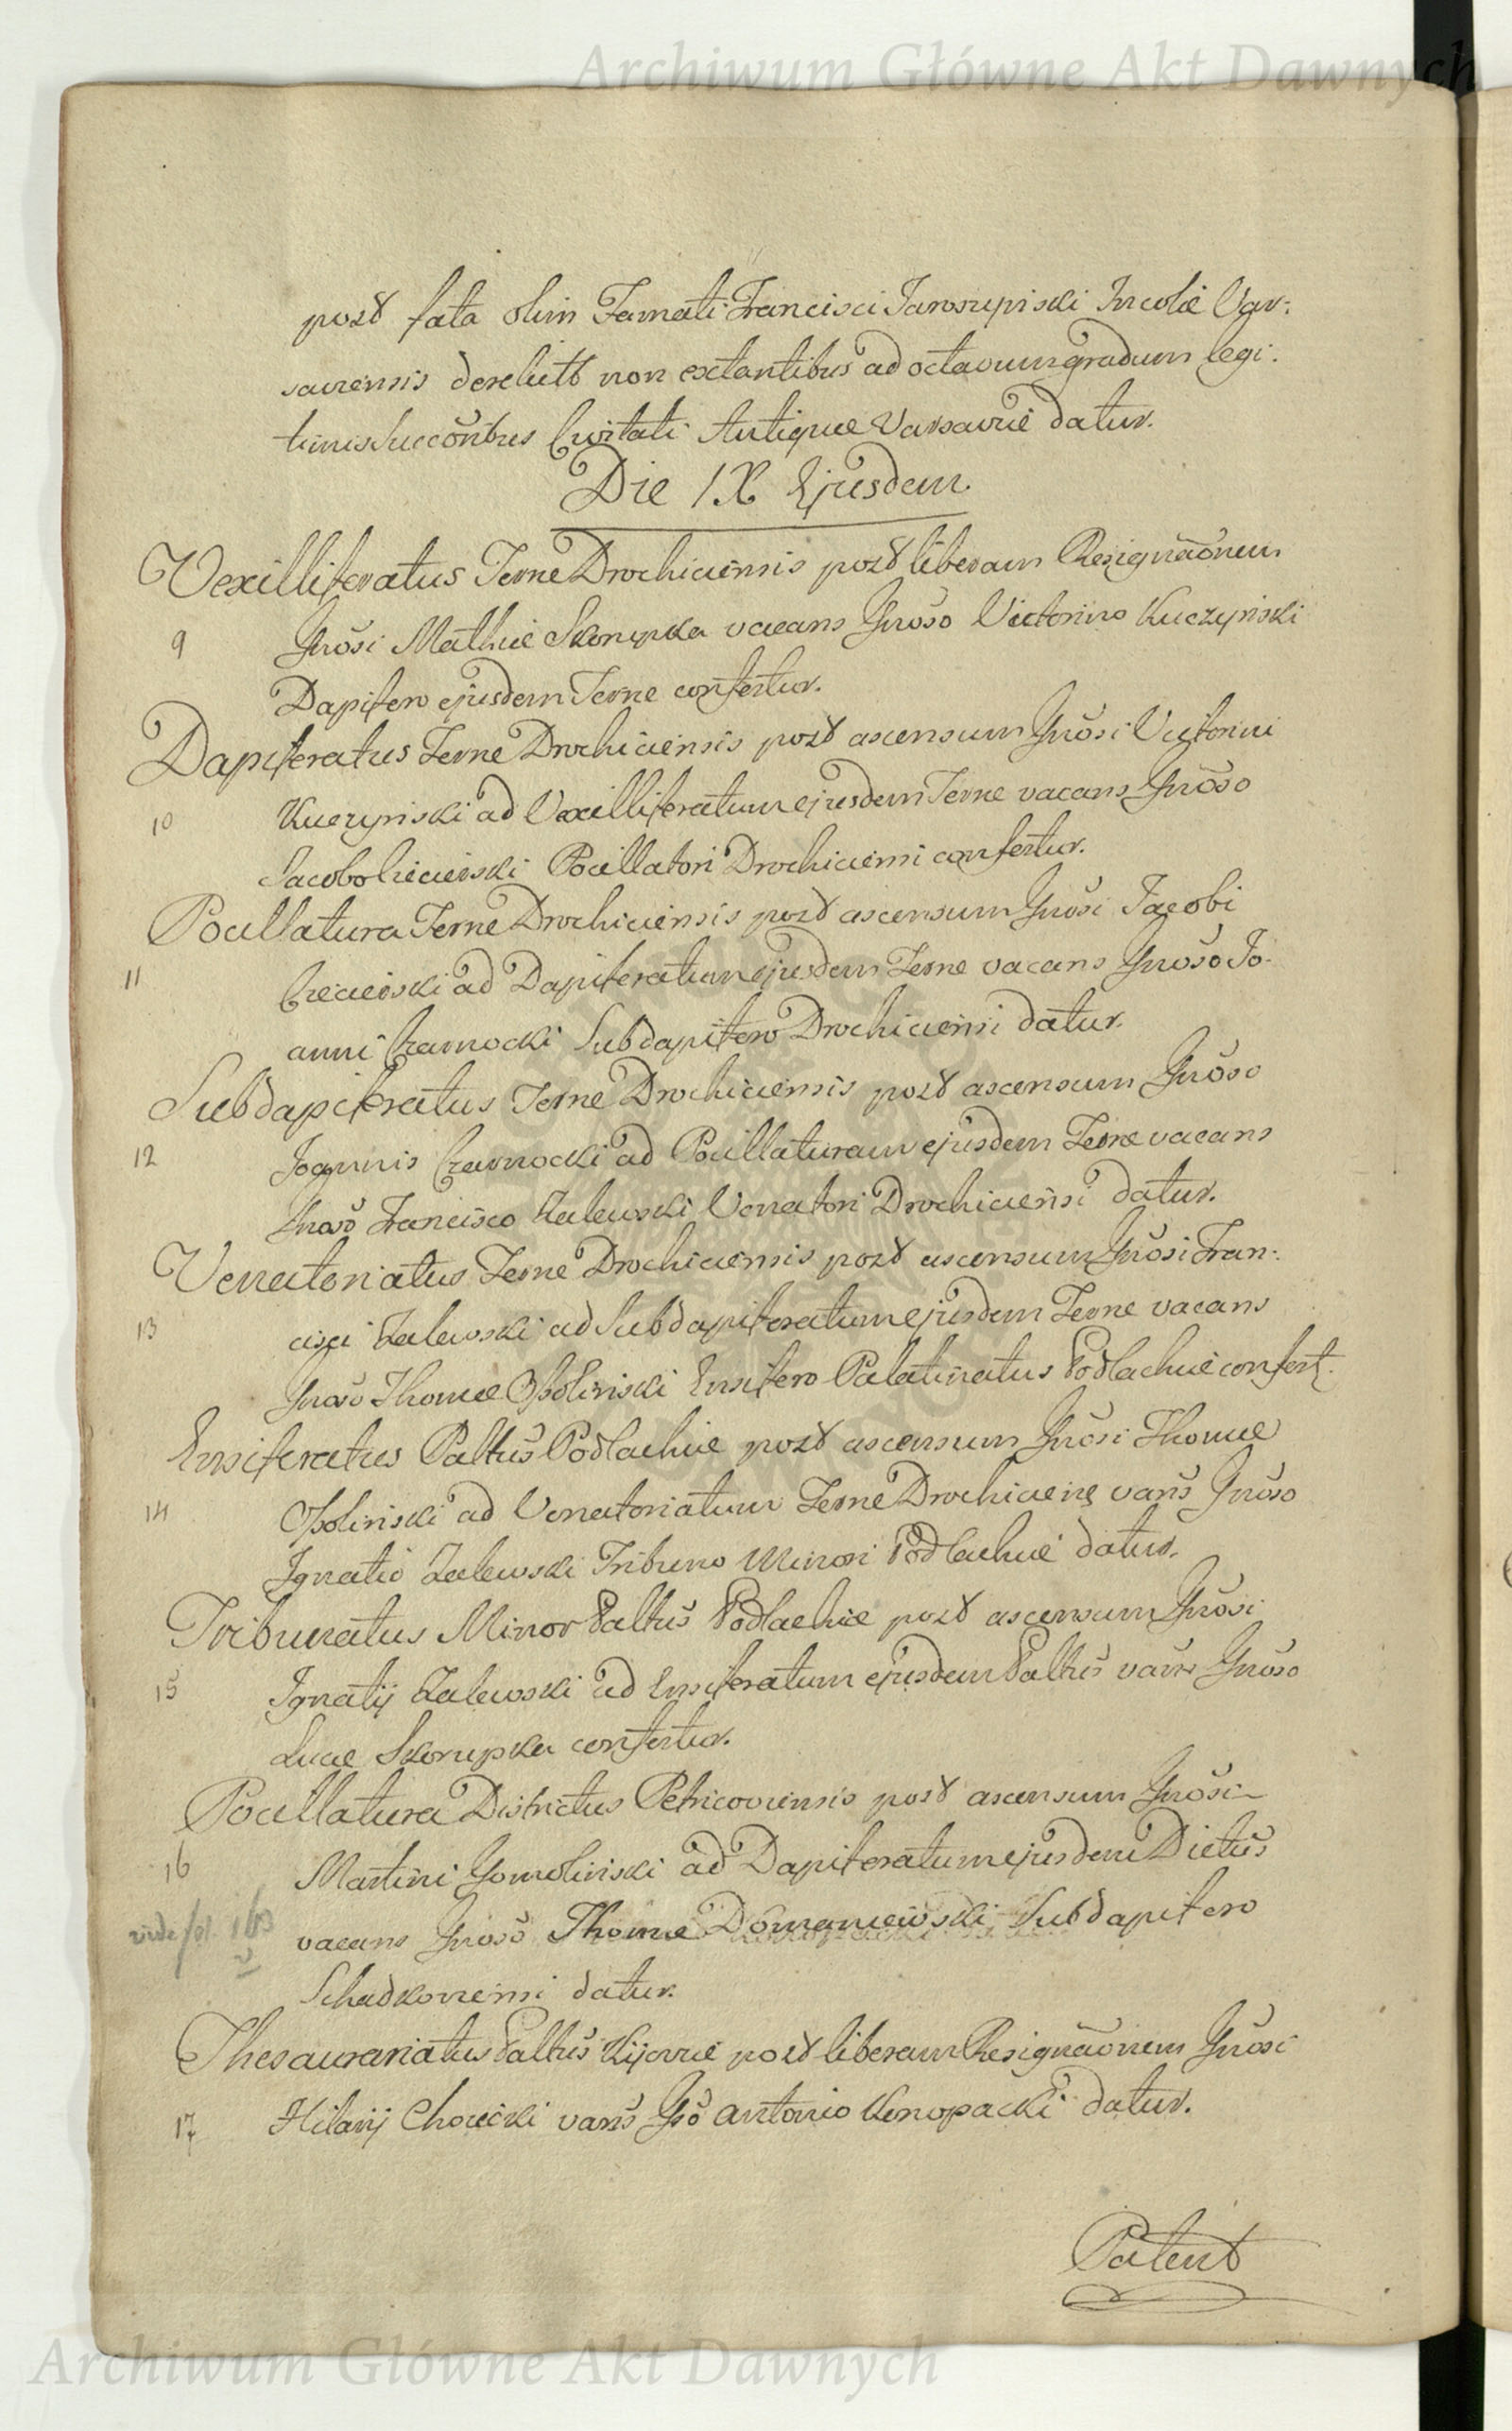 Archiwum Główne Akt Dawnych
post fata olim Famati Francisci Jaroszyński Incolæ Var:
saviensis derelicto non extantibus ad octavum gradum legi:
timis Succoribus Civitati Antiquæ Varsaviæ datur.
Die IX Ejusdem
Vexilliferatus Terræ Drohiciensis post liberam Resignaõnem
9 Gnosi Mathiæ Skorupka vacans Gnoso Victorino Kuczyński
Dapifero ejusdem Terræ confertur.
Dapiferatus Terræ Drohiciensis post ascensum Gnosi Victorini
10 Kuczyński ad Vexilliferatum ejusdem Terræ vacans Gnoso
Jacobo Ciecierski Pocillatori Drohiciensi confertur.
Pocillatura Terræ Drohiciensis post ascensum Gnosi Jacobi
11 Ciecierski ad Dapiferatum ejusdem Terræ vacans Gnoso Jo-
anni Czarnocki Subdapifero Drohiciensi datur.
Subdapiferatus Terræ Drohiciensis post ascensum Gnoso
12 Joannis Czarnocki ad Pocillaturam ejusdem Terræ vacans
Gnoso Francisco Zalewski Venatori Drohiciensi datur.
Venatoriatus Terræ Drohiciensis post ascensum Gnosi Fran:
13 cisci Zalewski ad Subdapiferatum ejusdem Terræ vacans
Gnoso Thomæ Ossoliński Ensifero Palatinatus Podlachiæ confert.
Ensiferatus Paltus Podlachiæ post ascensum Gnosi Thomæ
14 Ossoliński ad Venatoriatum Terræ Drohiciens vans Gnoso
Ignatio Zalewski Tribuno Minori Podlachiæ datur.
Tribunatus Minor Paltus Podlachiæ post ascensum Gnosi
15 Ignatij Zalewski ad Ensiferatum ejusdem Paltus vans Gnoso
Lucæ Skorupka confertur.
Pocillatura Districtus Petricoviensis post ascensum Gnosi
16 Martini Gomoliński ad Dapiferatum ejusdem Dictus
vide fol. 163 v vacans Gnoso Thomæ Domaniewski Subdapifero
Schadkoviensi datur.
Thesaurariatus Paltus Kijoviæ post liberam Resignaõnem Gnosi
17 Hilarij Chocicki vans Gso Antonio Konopacki datur.
Patent
Archiwum Główne Akt Dawnych